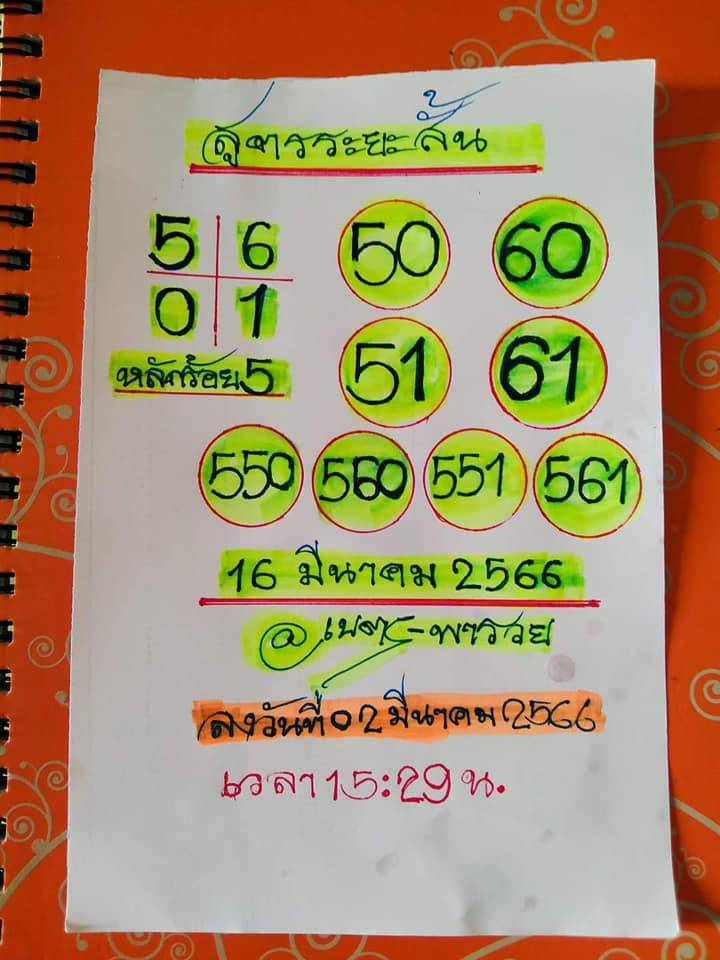 สูตรระยะสั้น
5 6 50 60
0 1
หลักร้อย 5 51 61
550 560 551 561
16 มีนาคม 2566
@เบตร-พารวย
ลงวันที่ 02 มีนาคม 2566
เวลา 15:29 น.